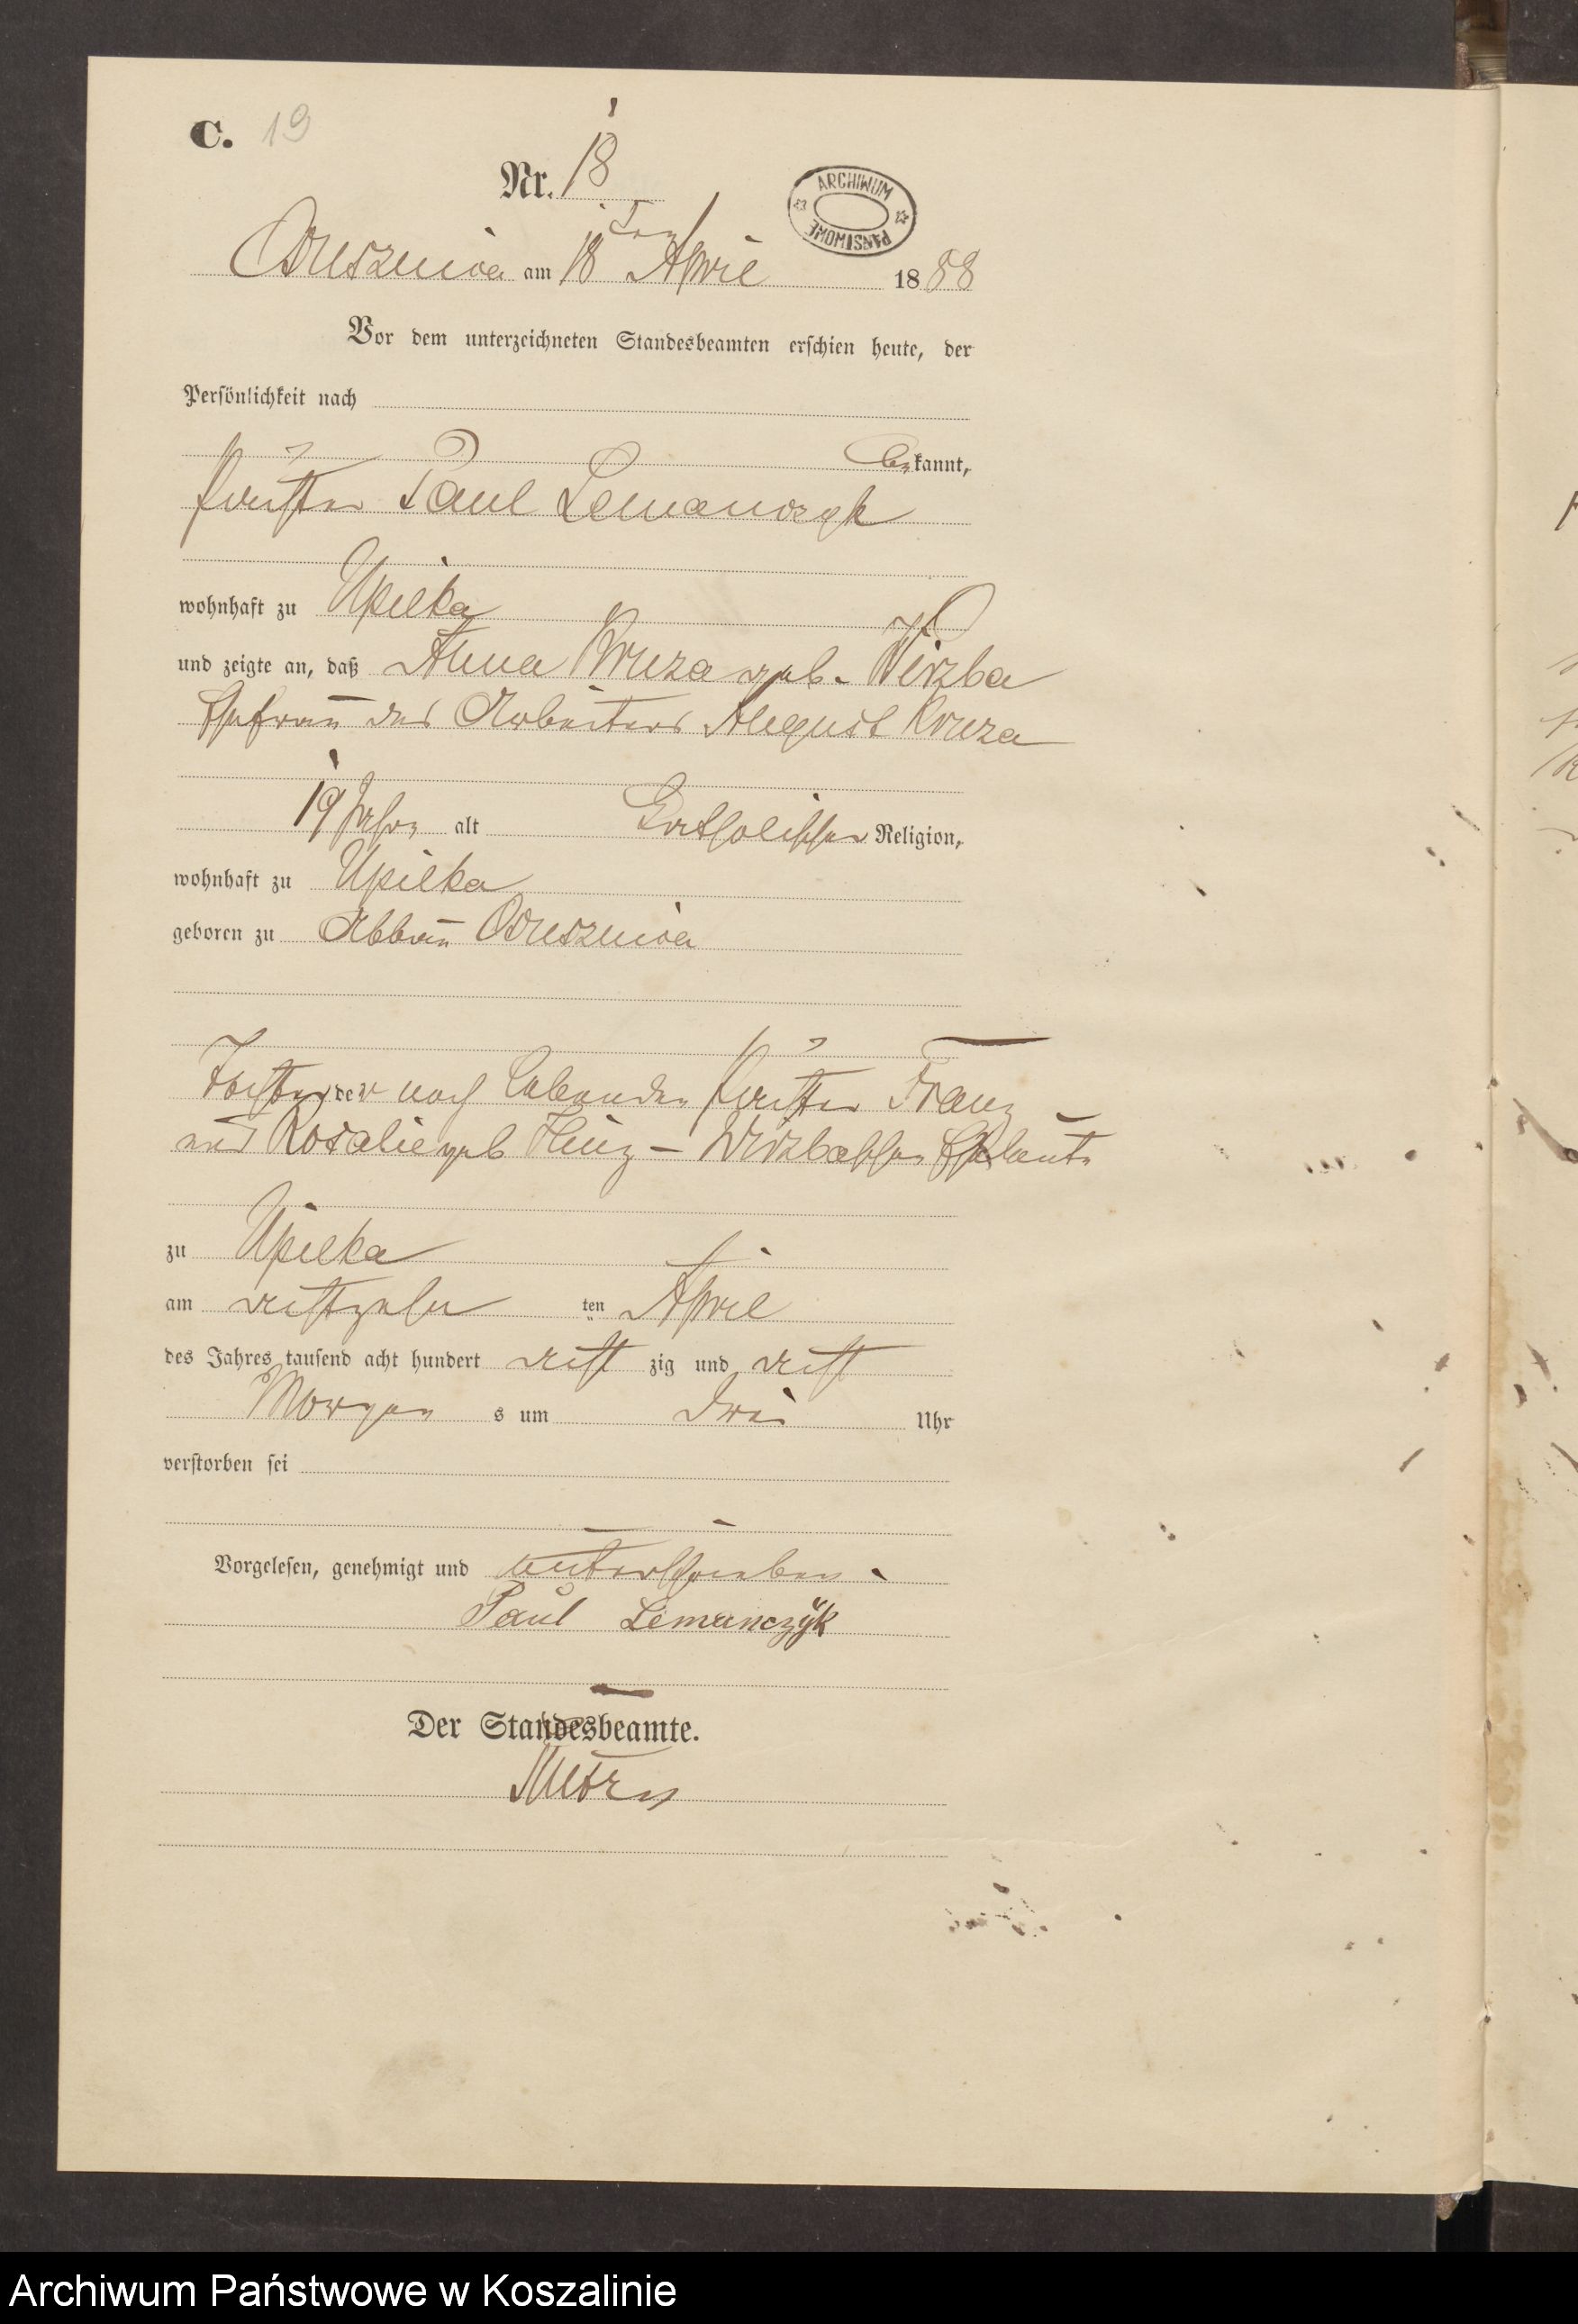 C. 19
Nr. 18
ARCHIWUM PAŃSTWOWE
Ossusznica am 18 ten April 1888
Vor dem unterzeichneten Standesbeamten erschien heute, der
Persönlichkeit nach
bekannt,
Paul Lemanczyk
wohnhaft zu Upilka
und zeigte an, daß Anna Kruza geb. Wirzba
Ehefrau des Arbeiters August Kruza
19 Jahre alt katholischer Religion,
wohnhaft zu Upilka
geboren zu Abbau Ossusznica
Tochter der noch lebenden Franz
und Rosalie geb Hinz – Wirzbaschen Eheleute
zu Upilka
am achtzehn ten April
des Jahres tausend acht hundert acht zig und acht
Morgen s um drei Uhr
verstorben sei
Vorgelesen, genehmigt und unterschrieben
Paul Lemanczÿk
Der Standesbeamte.
Archiwum Państwowe w Koszalinie